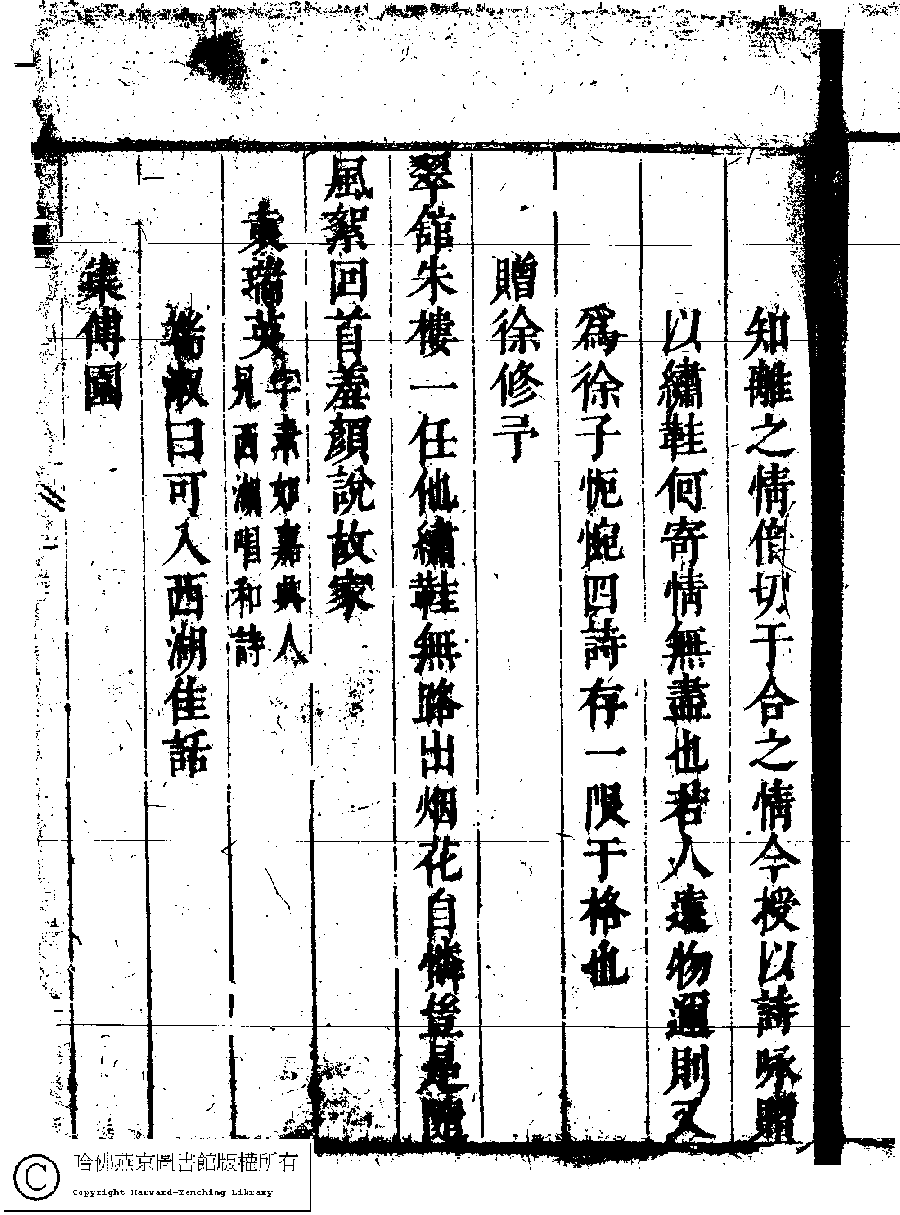 知離之情僧切于合之情今授以詩咏贈
以繡鞋何寄情無盡也若人遠物邇則又
為徐子悒惋四詩存一限于格也
贈徐修予
翠館朱樓一任他繡鞋無路出烟花自憐豈是隨
風絮回首羞顏說故家
袁瑞英
字肅如嘉興人
見西湖唱和詩
端淑曰可入西湖佳話
集傅園
哈佛燕京圖書館版權所有
Copyright Harvard-Yenching Library